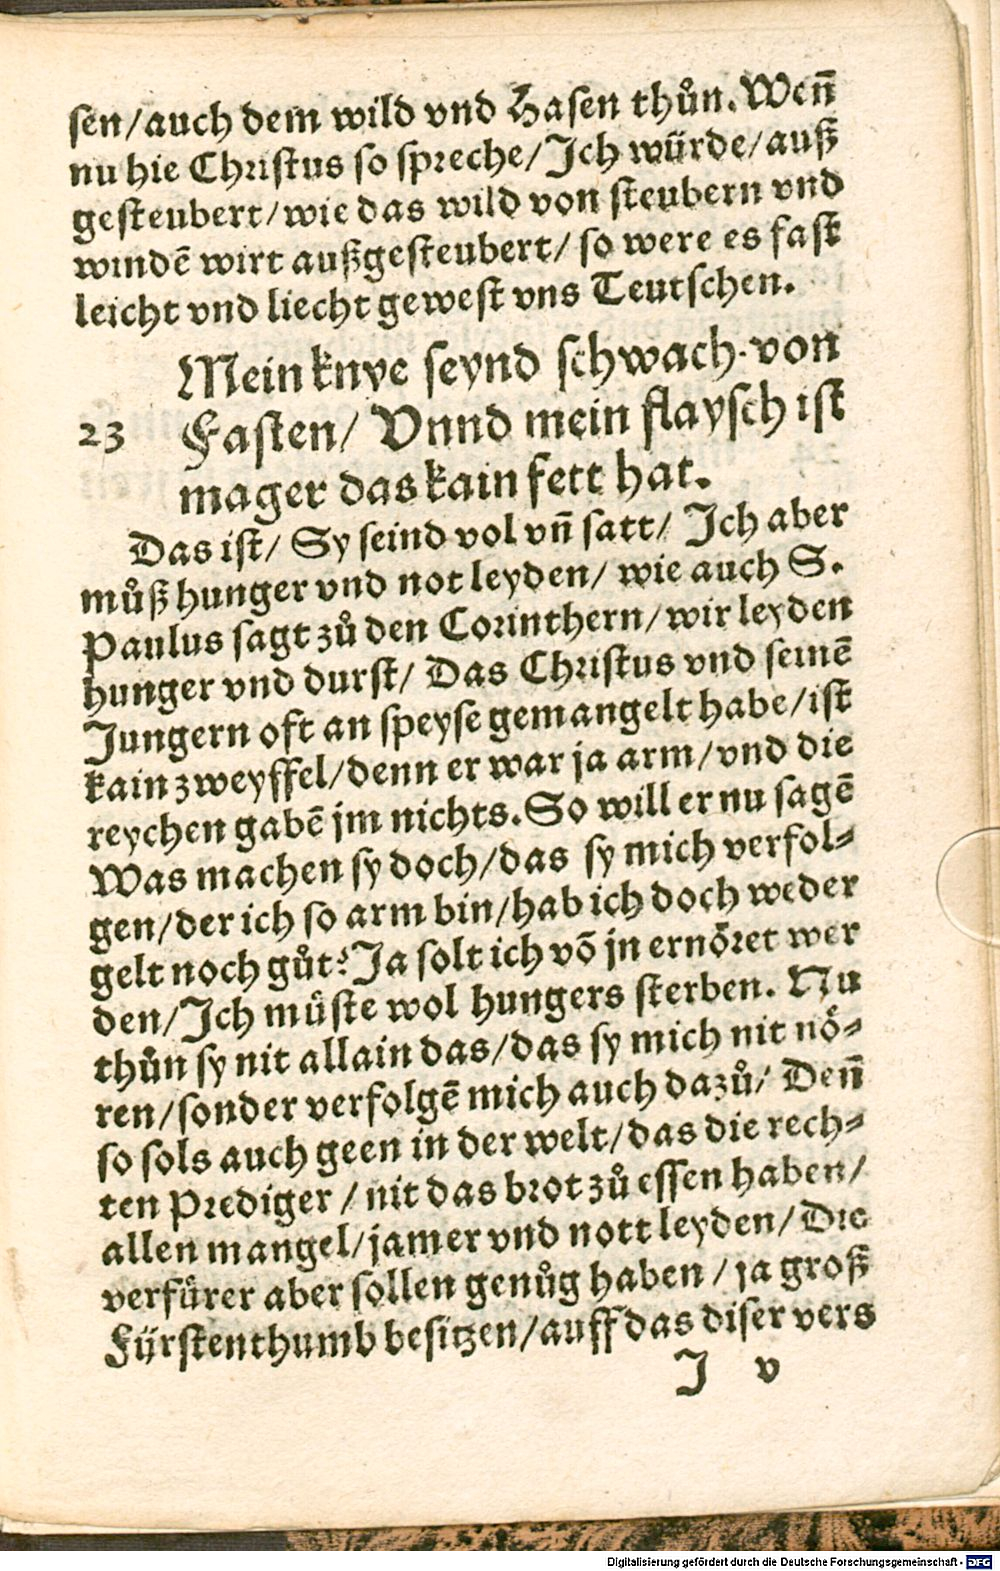 sen/auch dem wild vnd Hasen thůn. Weñ
nu hie Christus so spreche/Ich würde/auß
gesteubert/wie das wild von steubern vnd
windẽ wirt außgesteubert/ so were es fast
leicht vnd liecht gewest vns Teutschen.
Mein knye seynd schwach von
23 Fasten/ Vnnd mein flaysch ist
mager das kain fett hat.
Das ist/ Sy seind vol vñ satt/ Ich aber
můß hunger vnd not leyden/ wie auch S.
Paulus sagt zů den Corinthern/wir leyden
hunger vnd durst/ Das Christus vnd seinẽ
Jungern oft an speyse gemangelt habe/ist
kain zweyffel/denn er war ja arm/vnd die
reychen gabẽ jm nichts. So will er nu sagẽ
Was machen sy doch/das sy mich verfol⸗
gen/der ich so arm bin/hab ich doch weder
gelt noch gůt? Ja solt ich võ jn ernöret wer
den/Ich müste wol hungers sterben. Nu
thůn sy nit allain das/das sy mich nit nö⸗
ren/sonder verfolgẽ mich auch dazů/ Deñ
so sols auch geen in der welt/das die rech⸗
ten Prediger/nit das brot zů essen haben/
allen mangel/jamer vnd nott leyden/Die
verfürer aber sollen genůg haben/ja groß
Fürstenthumb besitzen/auff das diser vers
J v
Digitalisierung gefördert durch die Deutsche Forschungsgemeinschaft - DFG